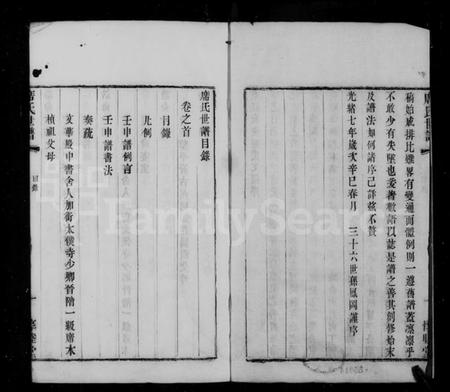 稿始成排比纖界有變通而體例則一遵舊譜蓋凛凛乎
不敢少有失墜也爰著數語以誌是譜之善其創修始末
及譜法如何諸序已詳茲不贅
光緒七年歲次辛巳春月 三十六世孫鳳岡謹序
席氏世譜
席氏世譜目錄
卷之首
目錄
凡例
壬申譜例言
壬申譜書法
奏疏
文華殿中書舍人加銜太僕寺少卿晉階一級席本
楨祖父母
席氏世譜
目錄
FamilySearch